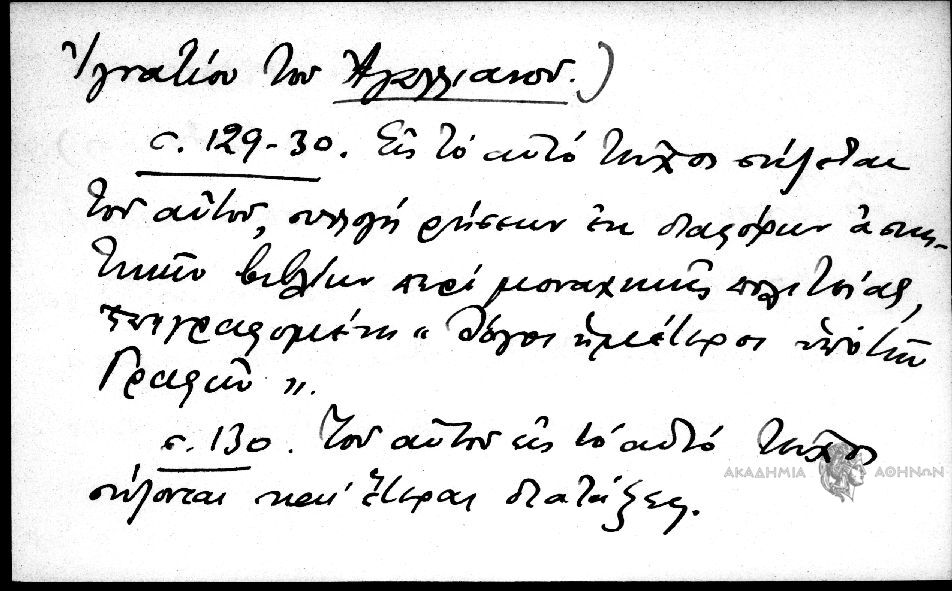 Ἰγνατίου τοῦ Ἀγαλλιανοῦ.)
σ. 129-30. Εἰς τὸ αὐτὸ τεῦχος σώζεται
τοῦ αὐτοῦ, συλλογὴ ρήσεων ἐκ διαφόρων ἀσκη-
τικῶν βιβλίων περὶ μοναχικῆς πολιτείας,
ἐπιγραφομένη « Λόγοι ἡμέτεροι ἀπὸ τῶν
Γραφῶν ».
σ. 130. Τοῦ αὐτοῦ εἰς τὸ αὐτὸ τεῦχος
σώζονται καὶ ἕτεραι διατάξεις.
ΑΚΑΔΗΜΙΑ ΑΘΗΝΩΝ